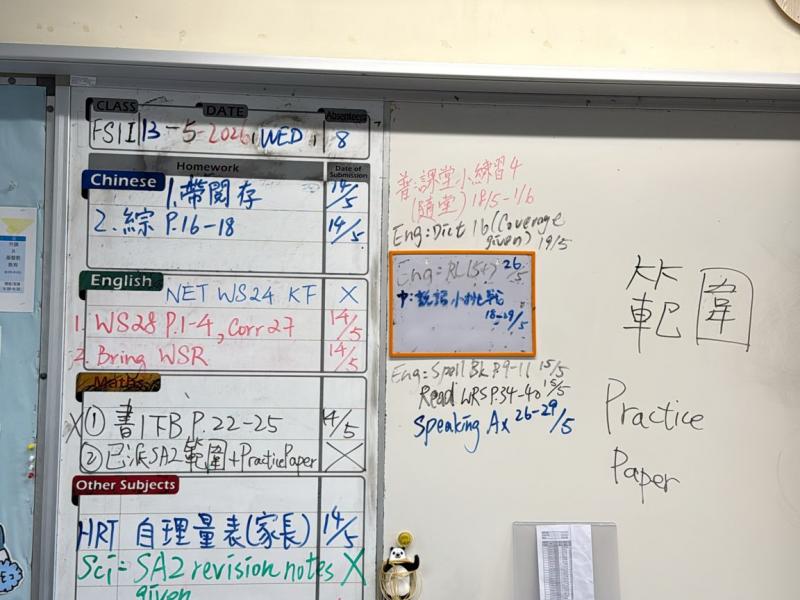 CLASS DATE Absentees
FSII 13-5-2026, WED 8
Homework Date of Submission
Chinese
1. 帶閱存 14/5
2. 綜 P.16-18 14/5
English
NET WS24 KF X
1. WS28 P.1-4, Corr 27 14/5
2. Bring WSR 14/5
Maths
X ① 書1下B P.22-25 14/5
② 已派SA2範圍+Practice Paper X
Other Subjects
HRT 自理量表(家長) 14/5
Sci = SA2 revision notes X
given
普:課堂小練習4
(隨堂) 18/5-1/6
Eng: Dict 16 (Coverage
given) 19/5
Eng= RL (5+) 26/5
中: 說話小挑戰
18-29/5
Eng: Spell Bk P.9-11 15/5
Read WRS P.34-40 15/5
Speaking Ax 26-29/5
範圍
Practice
Paper